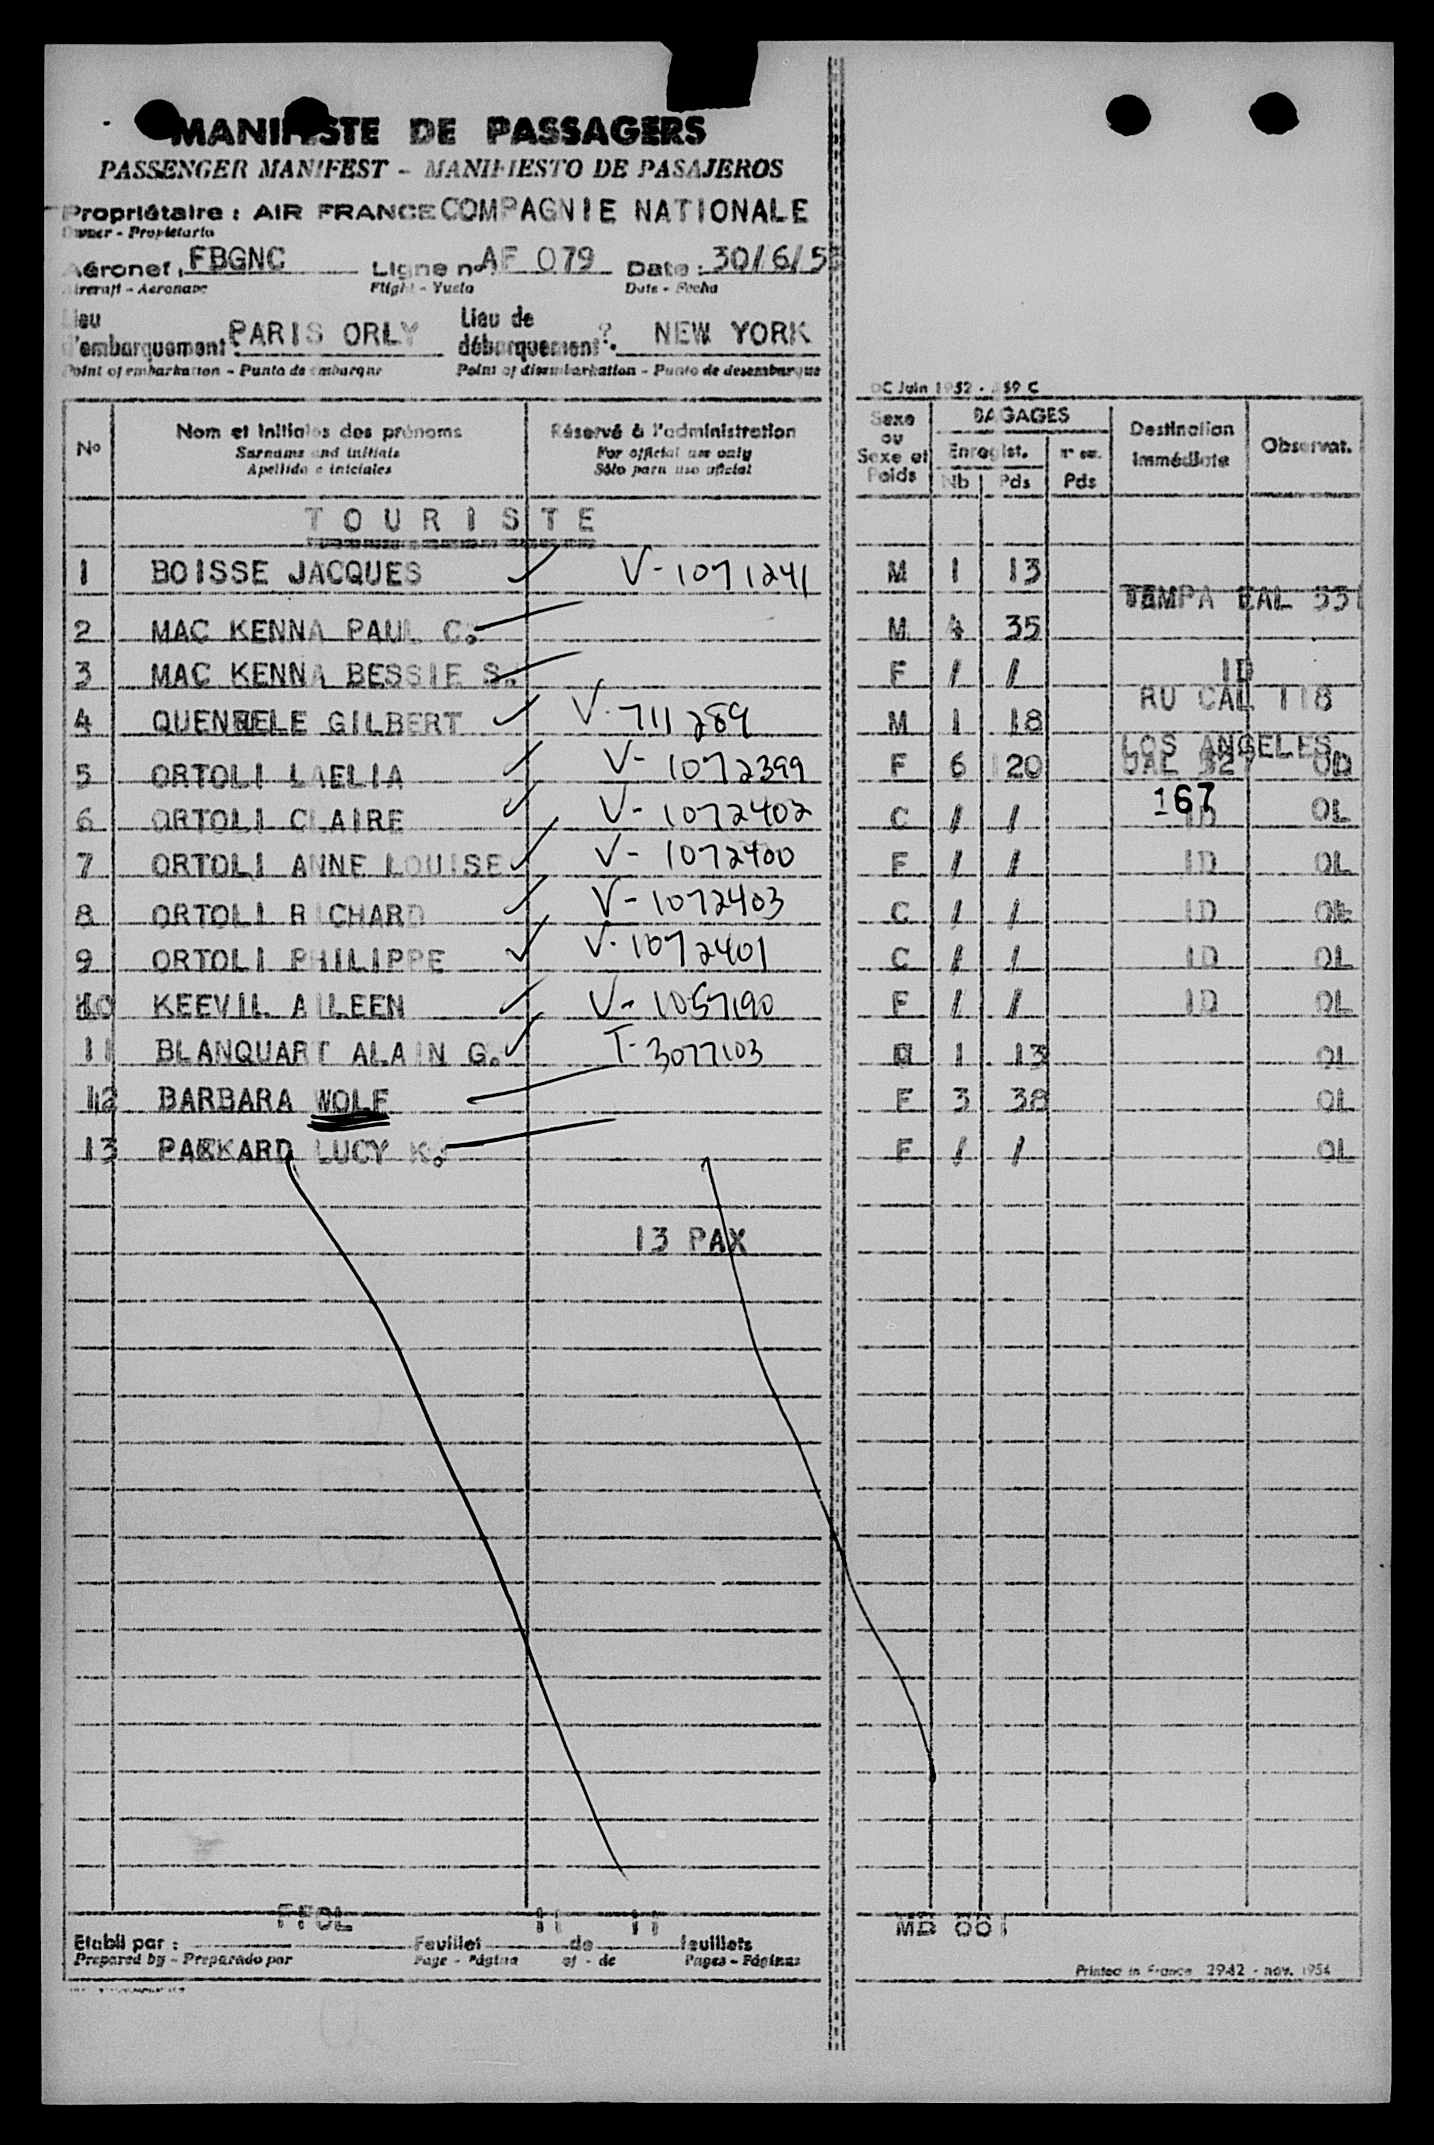 MANIFESTE DE PASSAGERS
PASSENGER MANIFEST - MANIFIESTO DE PASAJEROS
Propriétaire : AIR FRANCE COMPAGNIE NATIONALE
Owner - Propietario
Aéronef : FBGNC Ligne n° AF 079 Date : 30/6/5
Aircraft - Aeronave Flight - Vuelo Date - Fecha
Lieu d'embarquement : PARIS ORLY Lieu de débarquement : NEW YORK
Point of embarkation - Punto de embarque Point of disembarkation - Punto de desembarque
OC Juin 1952 - 459 C
No Nom et initiales des prénoms Réservé à l'administration Sexe ou Sexe et Poids BAGAGES Destination immédiate Observat.
Surname and initials For official use only Enregist.
Apellido e iniciales Sólo para uso oficial Nb Pds Pds
T O U R I S T E
1 BOISSE JACQUES V-1071241 M 1 13
TAMPA EAL
2 MAC KENNA PAUL C. M 4 35
3 MAC KENNA BESSIE S. F / / ID
RU CAL 118
4 QUENELE GILBERT V-711289 M 1 18
LOS ANGELES
5 ORTOLI LAELIA V-1072399 F 6 120 UAL
167
6 ORTOLI CLAIRE V-1072402 C / / ID OL
7 ORTOLI ANNE LOUISE V-1072400 F / / ID OL
8 ORTOLI RICHARD V-1072403 C / / ID OL
9 ORTOLI PHILIPPE V-1072401 C / / ID OL
10 KEEVIL AILEEN V-1057190 F / / ID OL
11 BLANQUART ALAIN G. T-3077103 1 13 OL
12 BARBARA WOLF F 3 38 OL
13 PACKARD LUCY K. F / / OL
13 PAX
FFOL 11 11 MB 001
Etabli par : Feuillet de feuillets
Prepared by - Preparado por Page - Página of - de Pages - Páginas
Printed in France 2982 - nov. 1954